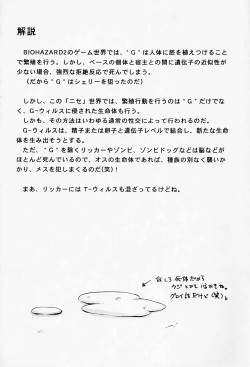 解説
BIOHAZARD2のゲーム世界では、"G"は人体に胚を植えつけること
で繁殖を行う。しかし、ベースの個体と宿主との間に遺伝子の近似性が
少ない場合、強烈な拒絶反応で死んでしまう。
（だから"G"はシェリーを狙ったのだ）
しかし、この「ニセ」世界では、繁殖行動を行うのは"G"だけでな
く、G-ウィルスに侵された生命体も行う。
しかも、その方法はいわゆる通常の性交によって行われるのだ。
G-ウィルスは、精子または卵子と遺伝子レベルで結合し、新たな生命
体を生み出そうとする。
ただ、"G"を除くリッカーやゾンビ、ゾンビドッグなどは脳などが
ほとんど死んでいるので、オスの生命体であれば、種族の別なく襲いか
かり、メスを犯しまくるのだ(笑)！
まあ、リッカーにはT-ウィルスも混ざってるけどね。